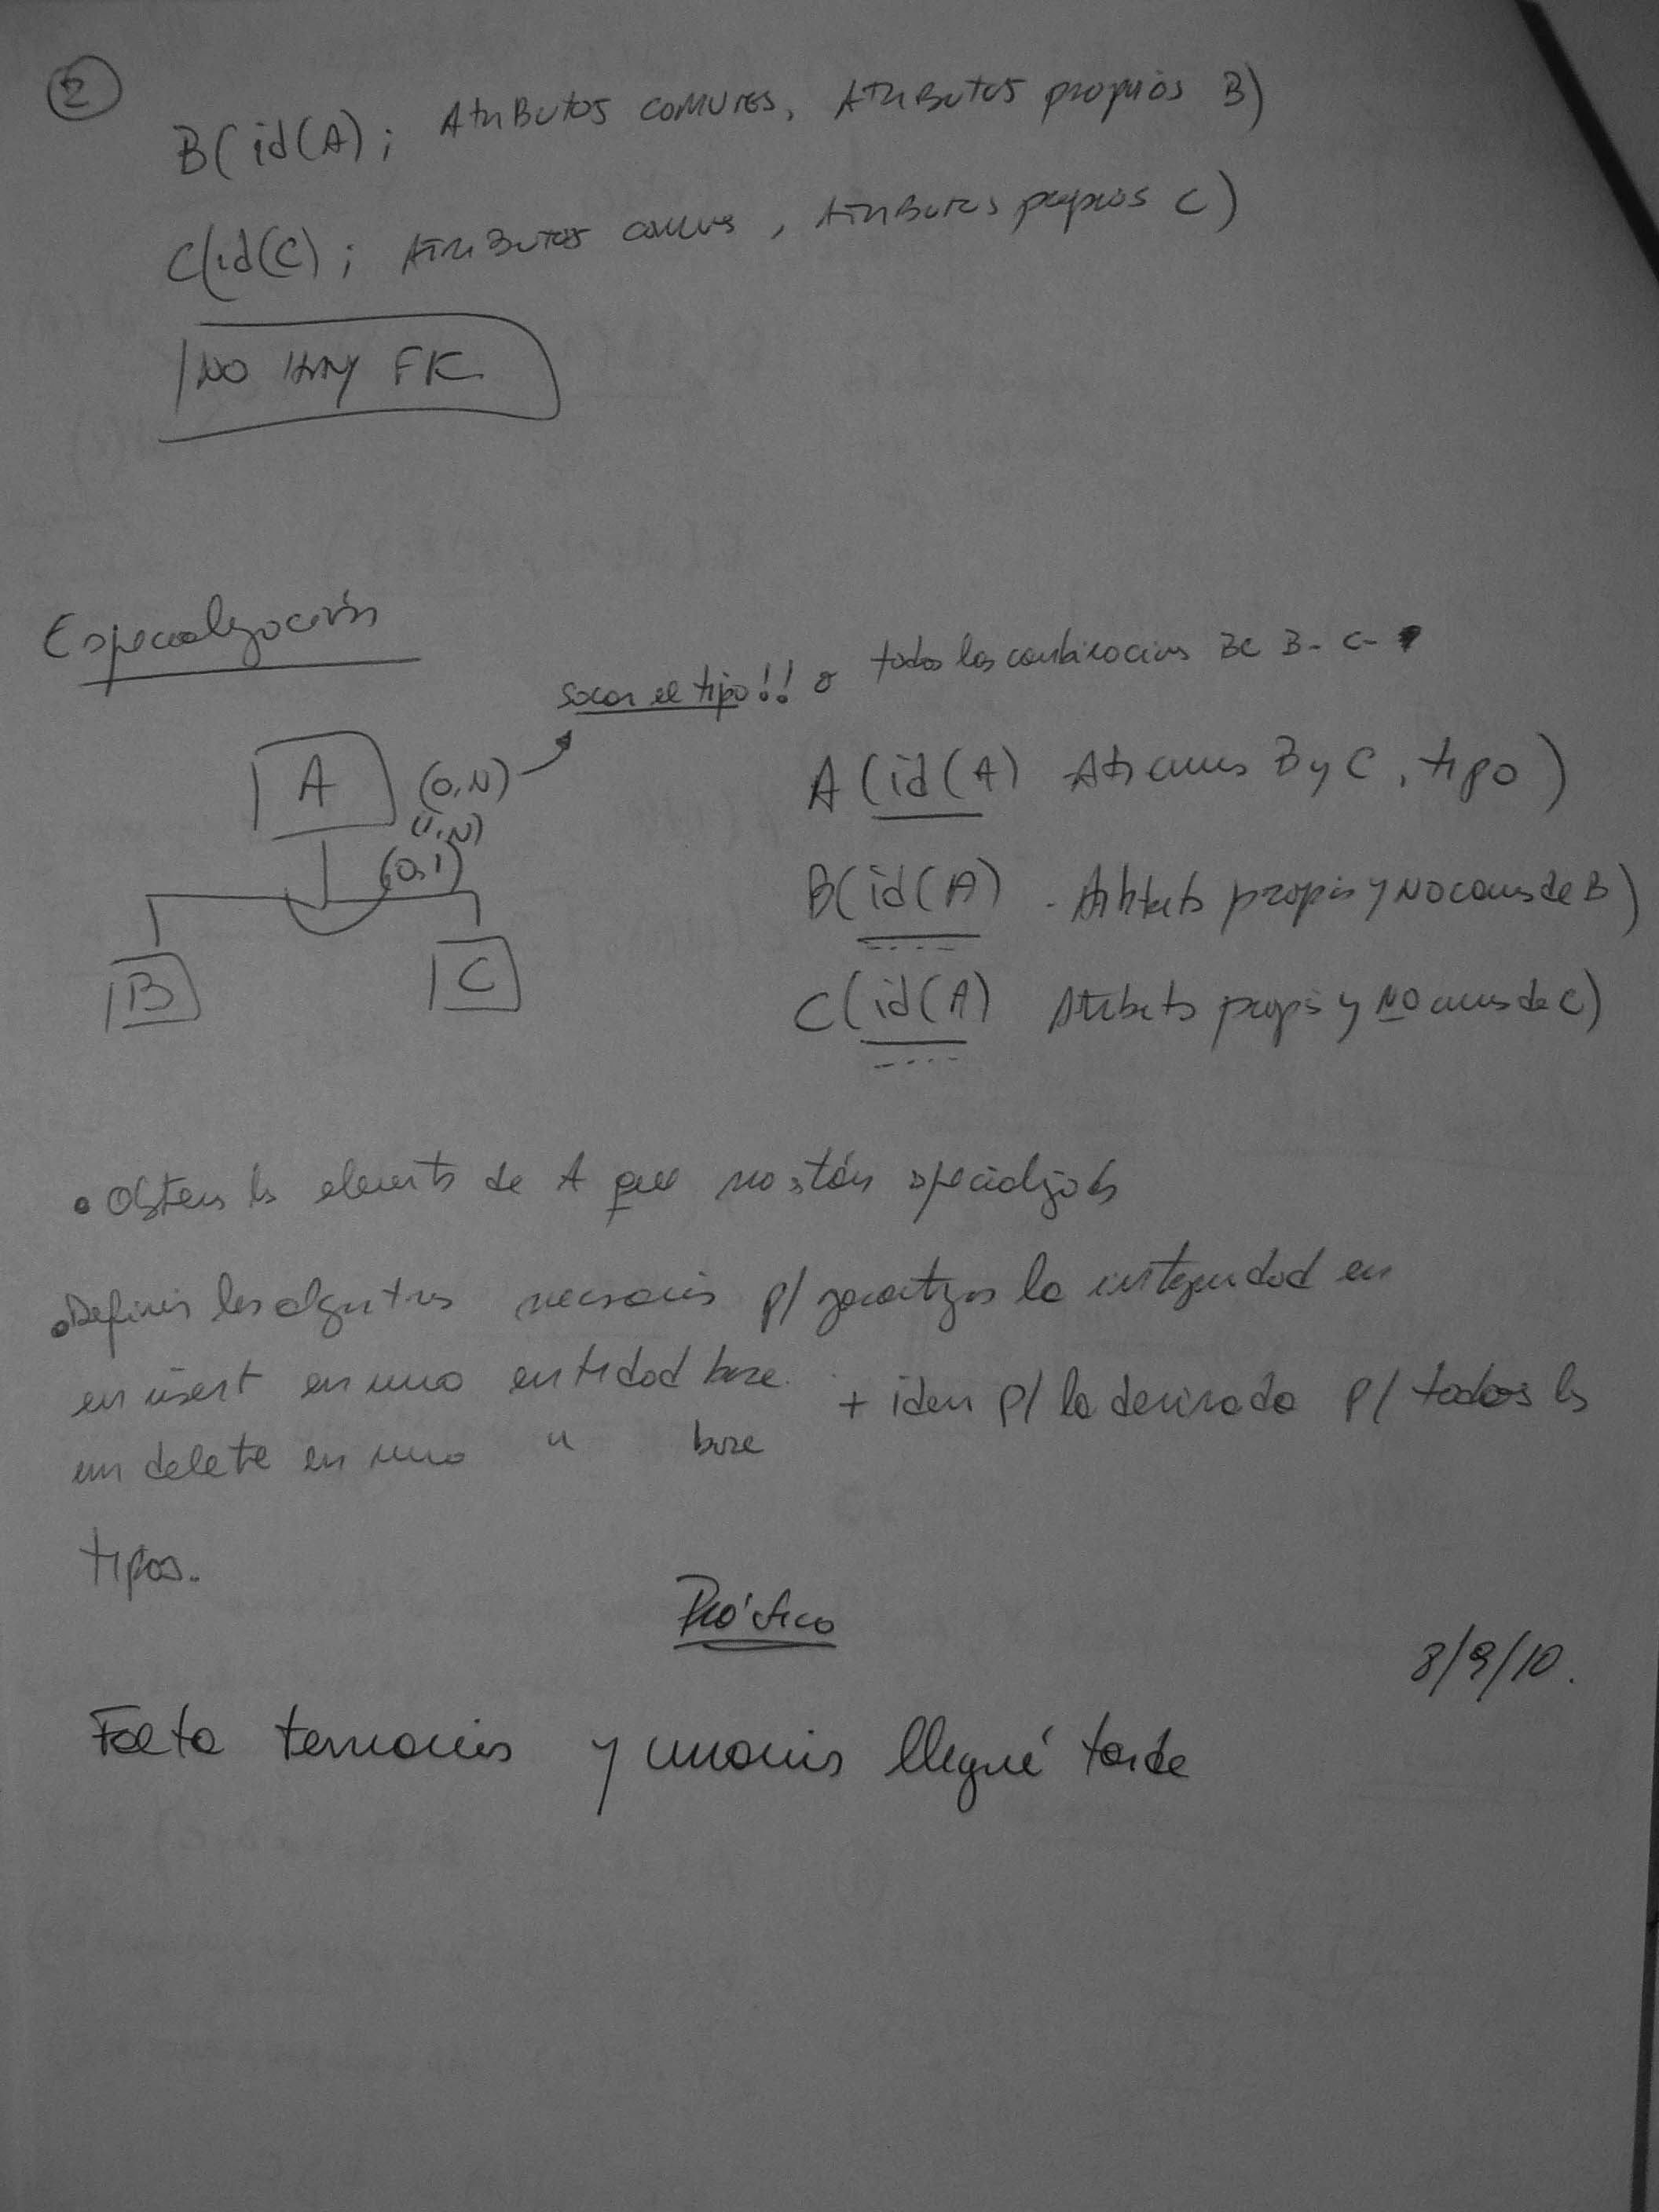 2
B(id(A); Atributos comunes, Atributos propios B)
C(id(C); Atributos comunes, Atributos propios C)
NO HAY FK
Especialización
sacar el tipo!! o todas las combinaciones BC B- C-
A (0,N)
(1,N)
(0,1)
B C
A(id(A) Atr comunes B y C, tipo)
B(id(A) - Atributos propios y NO comunes de B)
C(id(A) Atributos propios y NO comunes de C)
• Obtener los elementos de A que no están especializados
• Definir los algoritmos necesarios p/ garantizar la integridad en
en insert en una entidad base. + idem p/ la derivada p/ todos los
un delete en una " base
tipos.
Práctico
8/9/10.
Falta ternarias y unarias llegué tarde